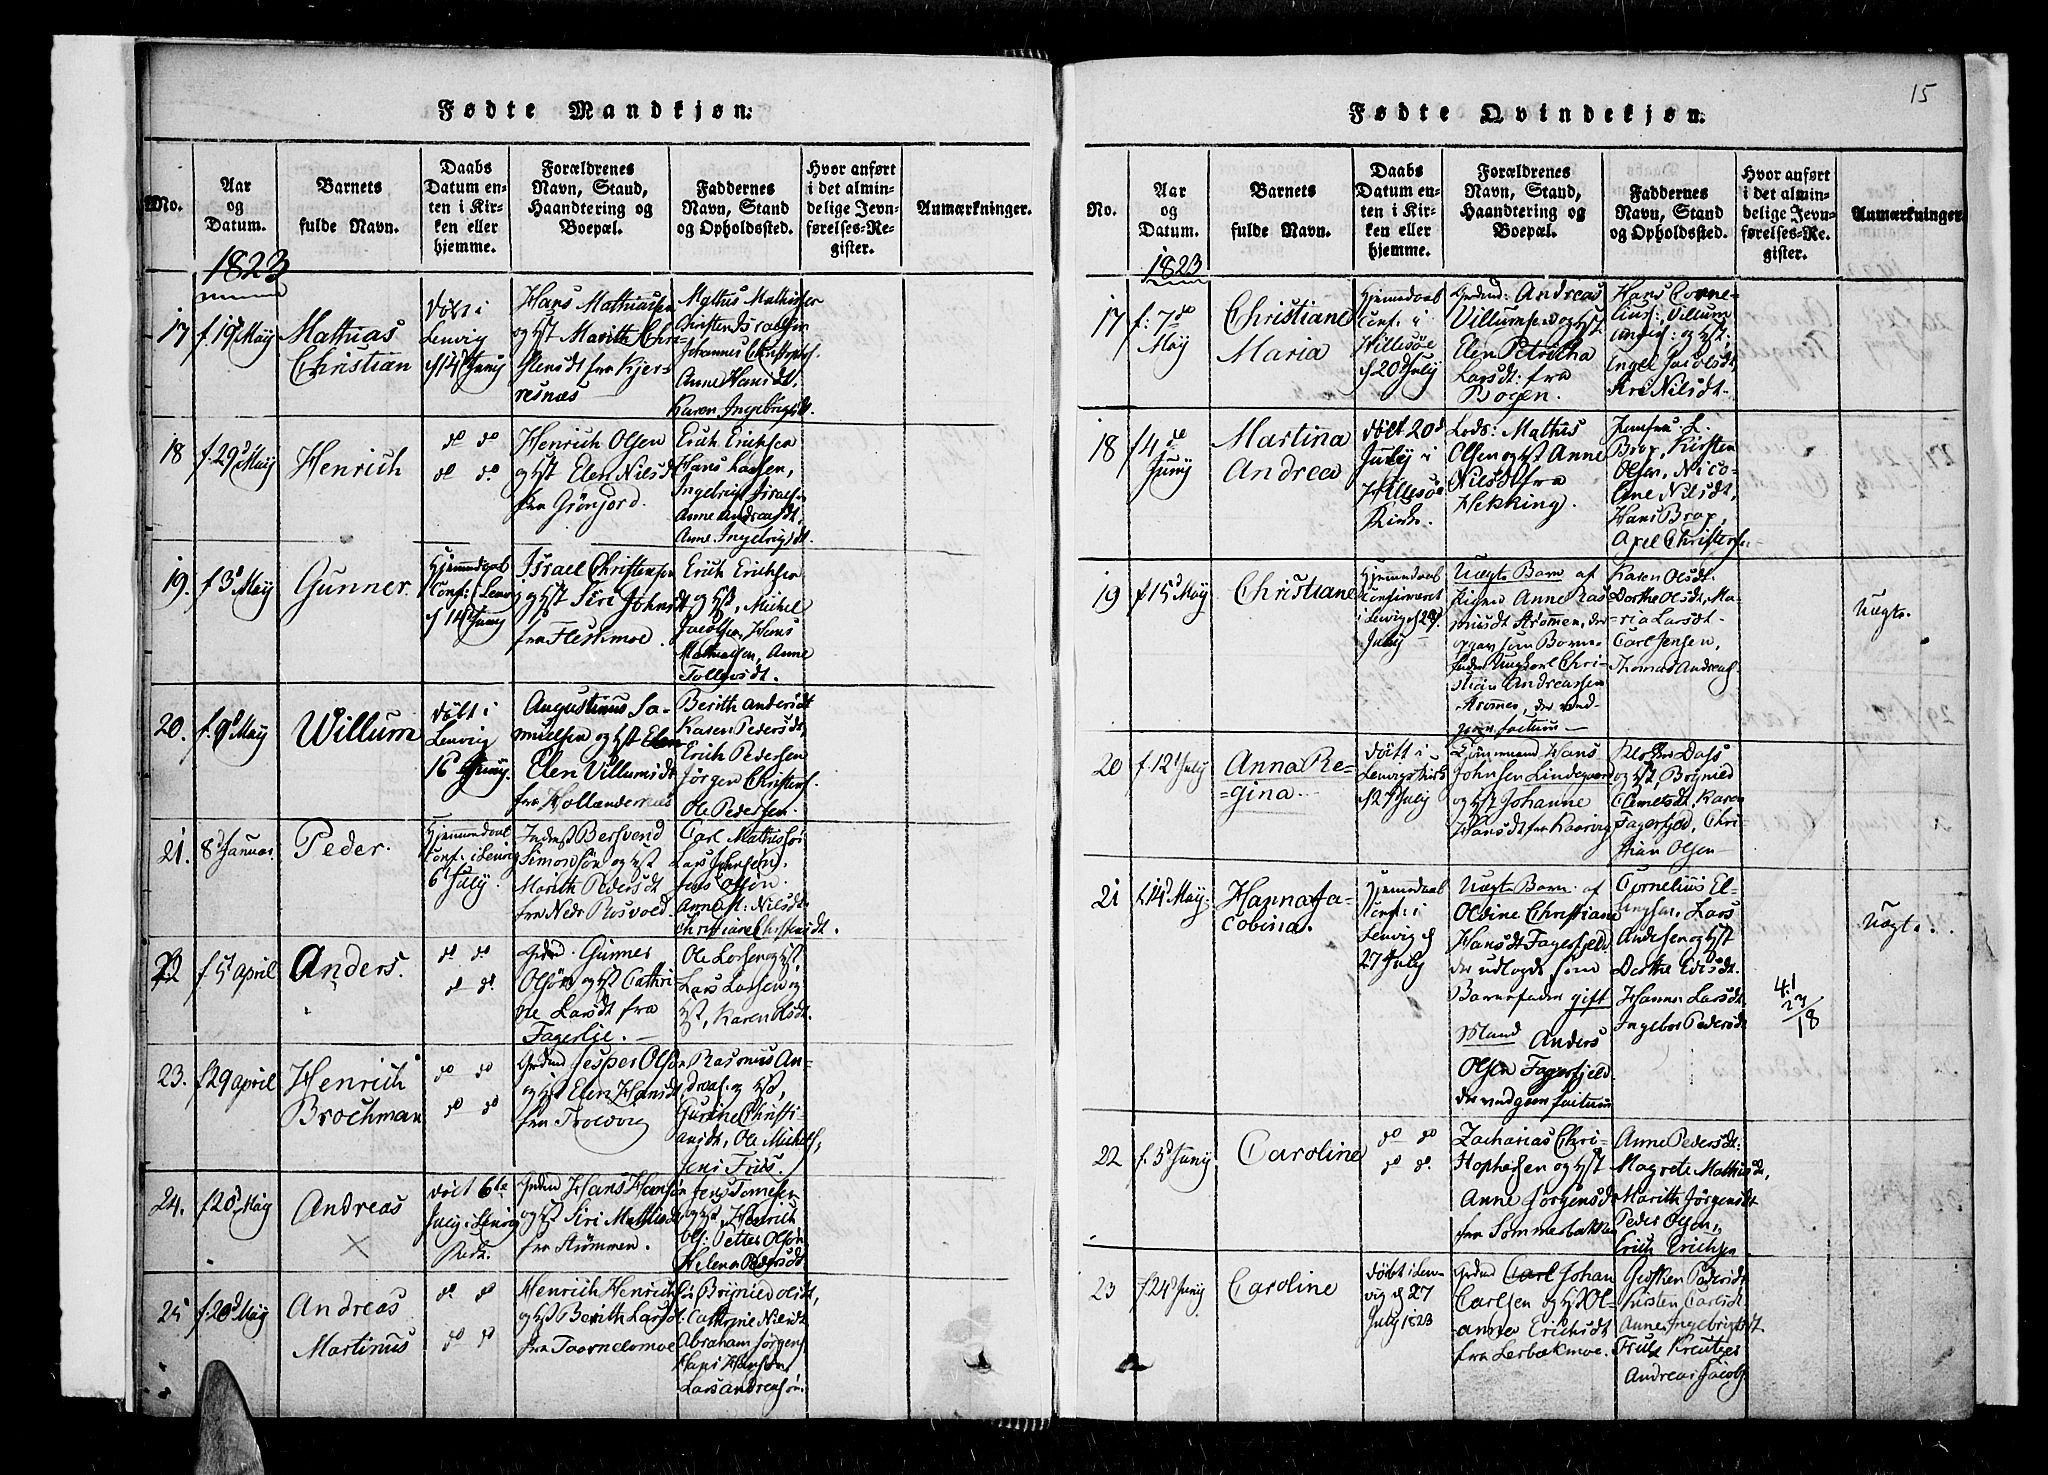 15
Fødte Mandkjøn.
No.
Aar
og
Datum.
Barnets
fulde Navn.
Daabs
Datum en-
ten i Kir-
ken eller
hjemme.
Forældrenes
Navn, Stand,
Haandtering og
Boepæl.
Faddernes
Navn, Stand
og Opholdssted.
Hvor anført
i det almin-
delige Jevn-
førelses-Re-
gister.
Anmærkninger.
1823
17
f. 19d May
Mathias
Christian
døbt i
Lenvig
d 14d Juny
Hans Mathiassen
og Hst Marith Chri-
stensdt fra Kjer-
resnæs
Mathis Mathissen
Christen Israelsen
Johannes Christophers.
Anne Hansdt,
Karen Ingebrigtsdt.
18
f. 29d May
Henrich
do do
do do
Henrich Olsen
og Hst Elen Nilsdt
fra Grönjord.
Erich Erichsen
Hans Larsen,
Ingebrigt Israelsen
Anne Andreasdt,
Anne Ingebrigtsdt.
19.
f 3d May
Gunner.
Hjemmedaab
Conf: i Lenvig
d 14d Juny
Israel Christensen
og Hst Siri Johnsdt
fra Fleskmoe
Erich Erichsen
og Hst, Michel
Jacobsen, Hans
Mathiassen, Anne
Tollevsdt.
20.
f. 9d May
Willum
døbt i
Lenvig
16 Juny.
Augustinus Sa-
muelsen og Hst
Elen Villumsdt
fra Hollændernæs
Berith Andersdt
Karen Pedersdt,
Erich Pedersen
Jörgen Christens.
Ole Pedersen
21.
8d Januar.
Peder.
Hjemmedaab
Conf: i Lenvig
6d July.
Inderst Bersvend
Simonsön og Hst
Marith Pedersdt
fra Nedr Rosvold.
Carl Mathissön
Lars Johnsön.
Jens Olsön.
Anne : Nilsdt
Christiane Christensdt.
22
f 5d april
Anders.
do do.
do do.
Grdmd. Gunner
Olsön og Hst Cathri-
ne Larsdt fra
Fagerlie.
Ole Larsen og Hst,
Lars Larsen og
Hst, Karen Olsdt.
23.
f 29 april
Henrich
Brochman
do do
do do
Grdmd Jesper Olsen
og Hst Elen Hansdt
fra Trolvig
Rasmus An-
dreas. og Hst,
Gurine Christi-
ansdt, Ole Michels,
Jens Friis.
24.
f 20d May
Andreas
døbt 6te
July i Lenvig
Kirke.
Grdmd Hans Hansön
og Hst Siri Mathisdt
fra Strömmen.
Jens Tomesen
og Hst, Henrich
Ols: Petter Olsön
Helena Pedersdt
25
f 20d May
Andreas
Martinus
do do
do do
Henrich Henrichsön
og Hst Berith Larsdt
fra Taarnelvmoe
Brynild Olsdt,
Cathrine Nilsdt
Abraham Jörgens
Hans Hansön
Lars Andreasön
Fødte Qvindekjøn.
No.
Aar
og
Datum.
Barnets
fulde Navn.
Daabs
Datum en-
ten i Kir-
ken eller
hjemme.
Forældrenes
Navn, Stand,
Haandtering og
Boepæl.
Faddernes
Navn, Stand
og Opholdssted.
Hvor anført
i det almin-
delige Jevn-
førelses-Re-
gister.
Anmærkninger
1823
17
f: 7de
May
Christiane
Maria
Hjemmedaab
Conf. i
Hillesöe
d 20d July
Grdmd: Andreas
Villumsen og Hst.
Elen Petritha
Larsdt: fra
Bogen.
Hans Corne-
lius: Villum
Anders: og Hst;
Engel Jacobsdt,
Siri Nilsdt.
18
f 4de
Juny
Martina
Andrea
døbt 20d
July i
Hillesöe
Kirke.
Lods: Mathis
Olsen og Hst Anne
Nilsdt fra
Hekking.
Jomfru L.
Brox, Kirsten
Olsen, Nico-
line Nilsdt,
Hans Brox,
Axel Christens.
19
f 15d May
Christiane
Hjemmedaab
Confirmeret
i Lenvig d 20d
July
Uægte Barn af
Pigen Anne Ras-
musdt Strömmen, der
opgav som Barne-
fader Ungkarl Chri-
stian Andreassen
Strömmen, der ved-
gaar factum
Karen Olsdt.
Dorthe Olsdt, Ma-
ria Larsdt
Carl Jensen,
Thomas Andreas.
Uægte.
20
f. 12d July
Anna Re-
gina.
døbt i
Lenvigs Kirke
d 27d July
Hans
Johnsen Lindegaard
og Hst Johanne
Hansdt fra Kaarvig
Petter Dass
og Hst, Brynild
Clemetsdt, Karen
Fagerfjeld, Chri-
stian Olsen
21
f. 14d May.
Hanna Ja-
cobina.
Hjemmedaab
Conf: i
Lenvig d
27 July
Uægte Barn. af
Oldine Christiane
Hansdt Fagerfjeld
der udlagde som
Barnefader gift
Mand Anders
Olsen Fagerfjeld
der vedgaar factum
Cornelius El-
ingsen, Lars
Andersen og Hst
Dorthe Ericsdt.
Hanna Larsdt,
Ingebor Pedersdt
41
23/18
Uægte.
22
f. 5d Juny
Caroline
do do
do do.
Zacharias Chri-
stophersen og Hst
Anne Jörgensdt
fra Sommerbakken
Anne Pedersdt:
Magrete Mathisdt,
Marith Jörgensdt
Peder Olsen,
Erich Erichsen
23
f. 24d Juny
Caroline
døbt i Len-
vig d 27
July 1823
Grdmd Carl Johan
Carlsen og Hst Ol-
anna Erichsdt
fra Lerbækmoe.
Pedersdt
Kirsten Carlsdt
Anne Ingebrigtsdt.
Friis Kreutzer
Andreas Jacobs.